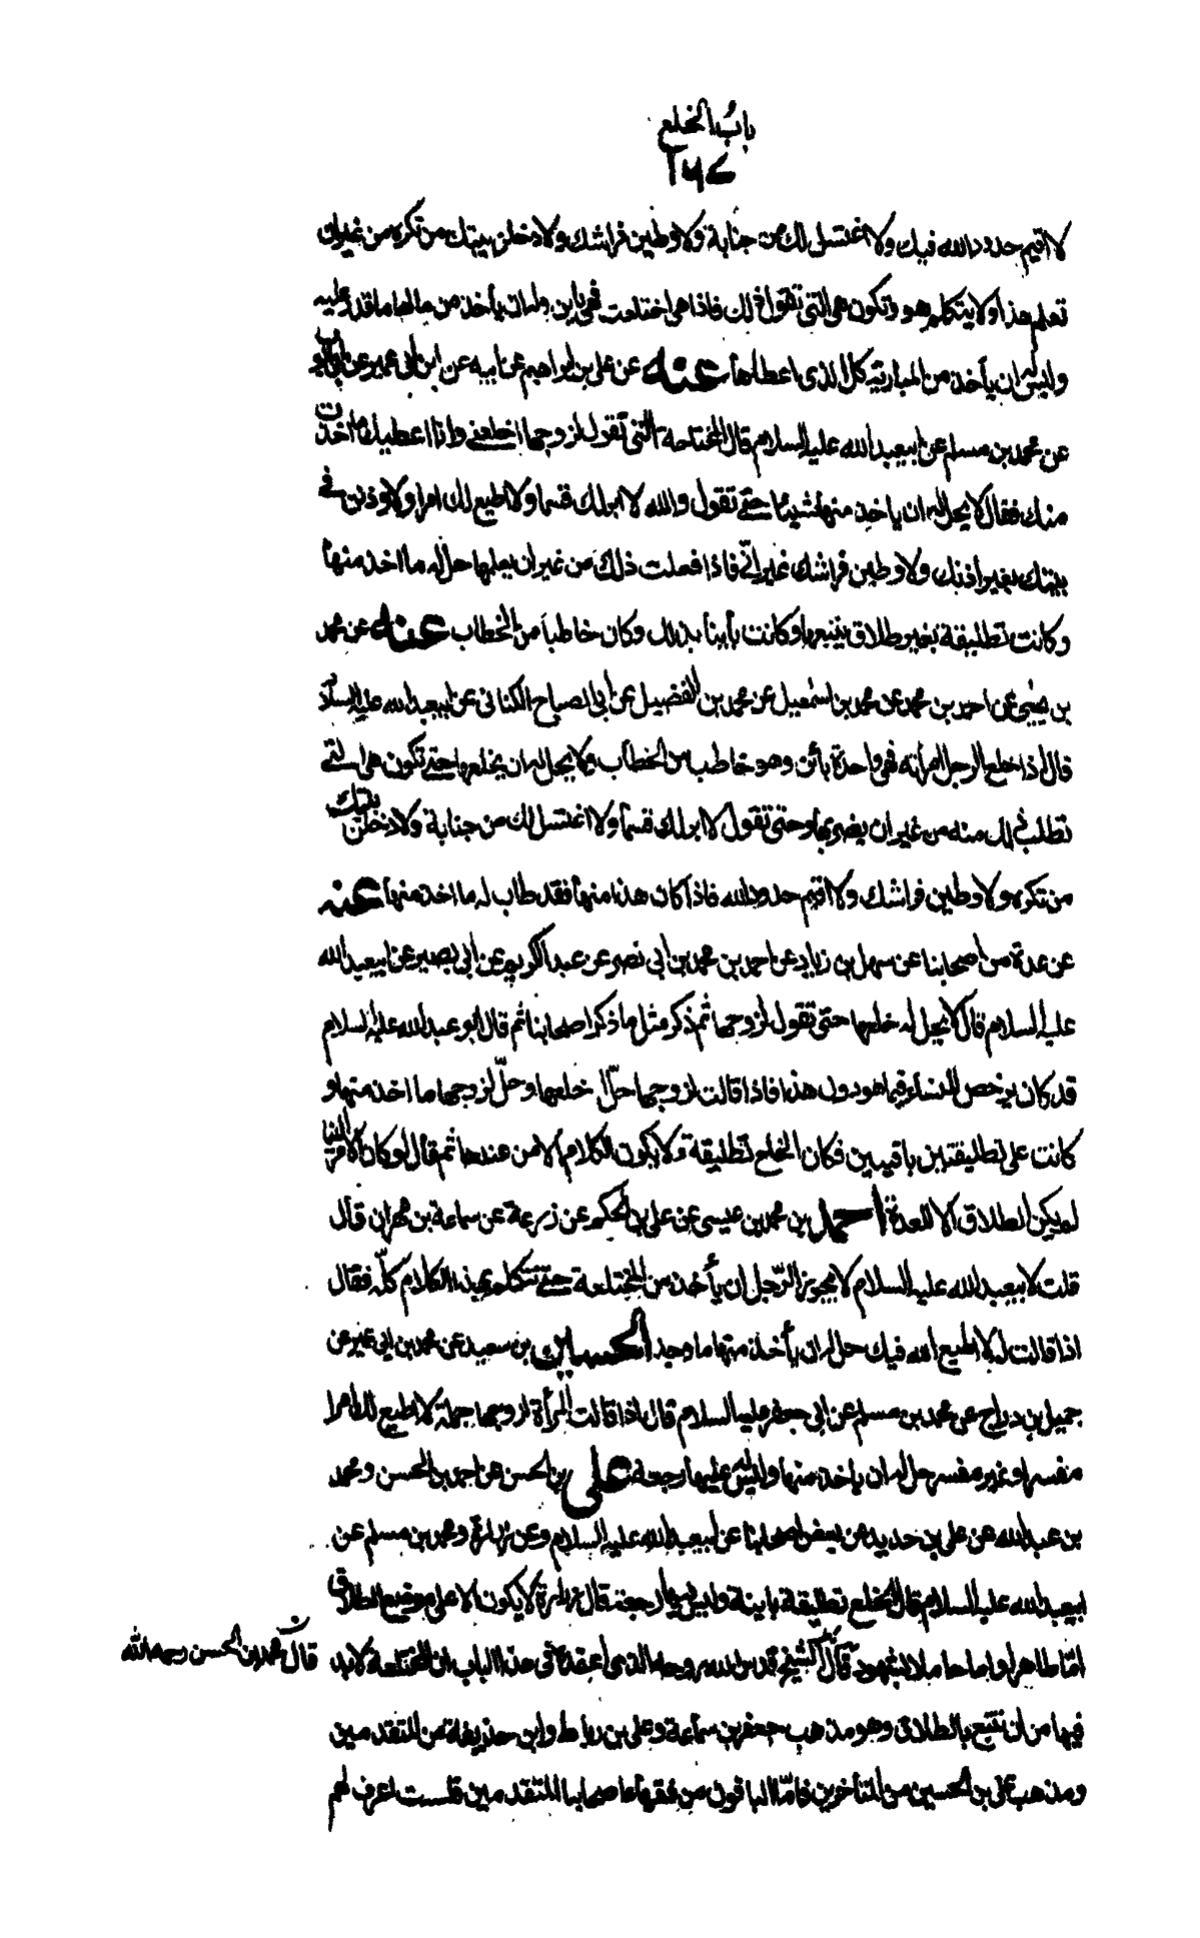 باب الخلع
٢٦٧
لا اقيم حدود الله فيك ولا اغتسل لك من جنابة ولاوطين فراشك ولادخلن بيتك من تكره من غير ان
تعلم هذا ولا يتكلم هو وتكون هي التي تقول ذلك فاذا هي اختلعت فهي باين وله ان يأخذ من مالها ما قدر عليه
وليس له ان يأخذ من المبارية كل الذي اعطاها عنه عن علي بن ابراهيم عن ابيه عن ابن ابي عمير عن ابي ايوب
عن محمد بن مسلم عن ابيعبد الله عليه السلام قال المختلعة التي تقول لزوجها اخلعني وانا اعطيك ما اخذت
منك فقال لا يحل له ان ياخذ منها شيئا حتى تقول والله لا ابر لك قسما ولا اطيع لك امرا ولاوذنن في
بيتك بغير اذنك ولاوطين فراشك غيرك فاذا فعلت ذلك من غير ان يعلمها حل له ما اخذ منها
وكانت تطليقة بغير طلاق يتبعها وكانت بأينا بذلك وكان خاطبا من الخطاب عنه عن محمد
بن يحيى عن احمد بن محمد عن محمد بن اسمعيل عن محمد بن الفضيل عن ابي الصباح الكناني عن ابيعبد الله عليه السلام
قال اذا خلع الرجل امرأته فهي واحدة بائن وهو خاطب من الخطاب ولا يحل له ان يخلعها حتى تكون هي التي
تطلب ذلك منه من غير ان يضر بها وحتى تقول لا ابر لك قسما ولا اغتسل لك من جنابة ولادخلن بيتك
من تكره ولاوطين فراشك ولا اقيم حدود الله فاذا كان هذا منها فقد طاب له ما اخذ منها عنه
عن عدة من اصحابنا عن سهل بن زياد عن احمد بن محمد بن ابي نصر عن عبد الكريم عن ابي بصير عن ابيعبد الله
عليه السلام قال لا يحل له خلعها حتى تقول لزوجها ثم ذكر مثل ما ذكر اصحابنا ثم قال ابو عبد الله عليه السلام
قد كان يرخص للنساء فيما هو دون هذا فاذا قالت لزوجها حل خلعها وحل لزوجها ما اخذ منها و
كانت على تطليقتين باقيتين فكان الخلع تطليقة ولا يكون الكلام الا من عندها ثم قال لو كان الامر الينا
لم يكن الطلاق الا للعدة احمد بن محمد بن عيسى عن علي بن الحكم عن زرعة عن سماعة بن مهران قال
قلت لابيعبد الله عليه السلام لا يجوز للرجل ان يأخذ من المختلعة حتى تتكلم بهذا الكلام كله فقال
اذا قالت له لا اطيع الله فيك حل له ان يأخذ منها ما وجد الحسين بن سعيد عن محمد بن ابي عمير عن
جميل بن دراج عن محمد بن مسلم عن ابي جعفر عليه السلام قال اذا قالت المرأة لزوجها جملة لا اطيع لك امرا
مفسرا وغير مفسر حل له ان ياخذ منها وليس له عليها رجعة علي بن الحسن عن احمد بن الحسن ومحمد
بن عبد الله عن علي بن حديد عن بعض اصحابنا عن ابيعبد الله عليه السلام وعن زرارة ومحمد بن مسلم عن
ابيعبد الله عليه السلام قال الخلع تطليقة باينة وليس فيها رجعة قال زرارة لا يكون الا على موضع الطلاق
اما طاهرا واما حاملا بشهود قال الشيخ قدس الله روحه الذي اعتقده في هذا الباب ان المختلعة لا بد
قال محمد بن الحسن رحمه الله
فيها من ان تتبع بالطلاق وهو مذهب جعفر بن سماعة وعلي بن رباط وابن حذيفة من المتقدمين
ومذهب علي بن الحسين من المتأخرين فاما الباقون من فقهاء اصحابنا المتقدمين فلست اعرف لهم